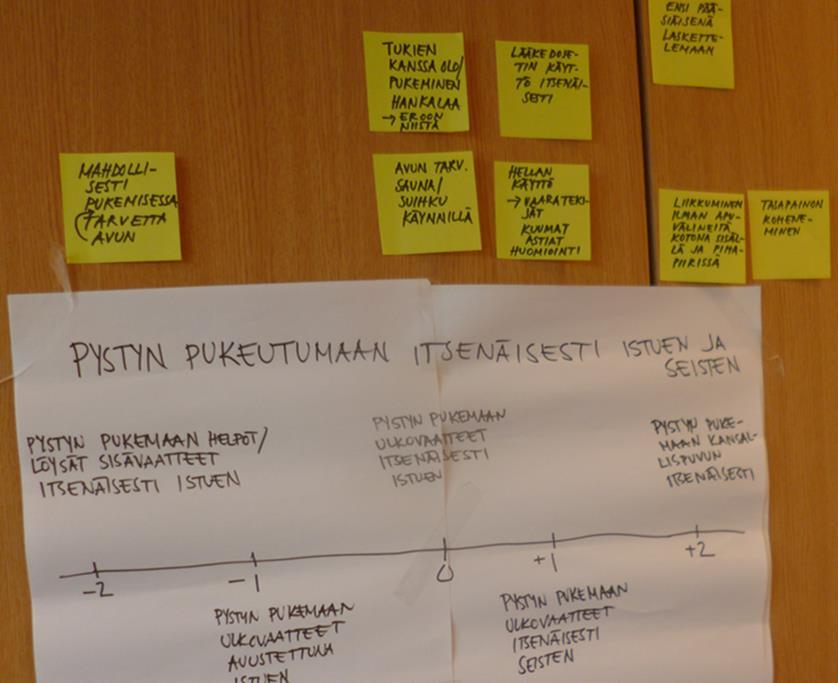 ENSI PÄÄ-
SIÄISENÄ
LASKETTE-
LEMAAN
TUKIEN
KANSSA OLO/
PUKEMINEN
HANKALAA
→ EROON
NIISTÄ
LÄÄKEDOSE-
TIN KÄYT-
TÖ ITSENÄI-
SESTI
MAHDOLLI-
SESTI
PUKEMISESSA
TARVETTA
AVUN
AVUN TARV.
SAUNA/
SUIHKU
KÄYNNILLÄ
HELLAN
KÄYTTÖ
→ VAARATEKI-
JÄT
KUUMAT
ASTIAT
HUOMIOINTI
LIIKKUMINEN
ILMAN APU-
VÄLINEITÄ
KOTONA SISÄL-
LÄ JA PIHA-
PIIRISSÄ
TASAPAINON
KOHENE-
MINEN
PYSTYN PUKEUTUMAAN ITSENÄISESTI ISTUEN JA
SEISTEN
PYSTYN PUKEMAAN HELPOT/
LÖYSÄT SISÄVAATTEET
ITSENÄISESTI ISTUEN
PYSTYN PUKEMAAN
ULKOVAATTEET
ITSENÄISESTI
ISTUEN
PYSTYN PUKE-
MAAN KANSAL-
LISPUVUN
ITSENÄISESTI
-2 -1 0 +1 +2
PYSTYN PUKEMAAN
ULKOVAATTEET
AVUSTETTUNA
ISTUEN
PYSTYN PUKEMAAN
ULKOVAATTEET
ITSENÄISESTI
SEISTEN